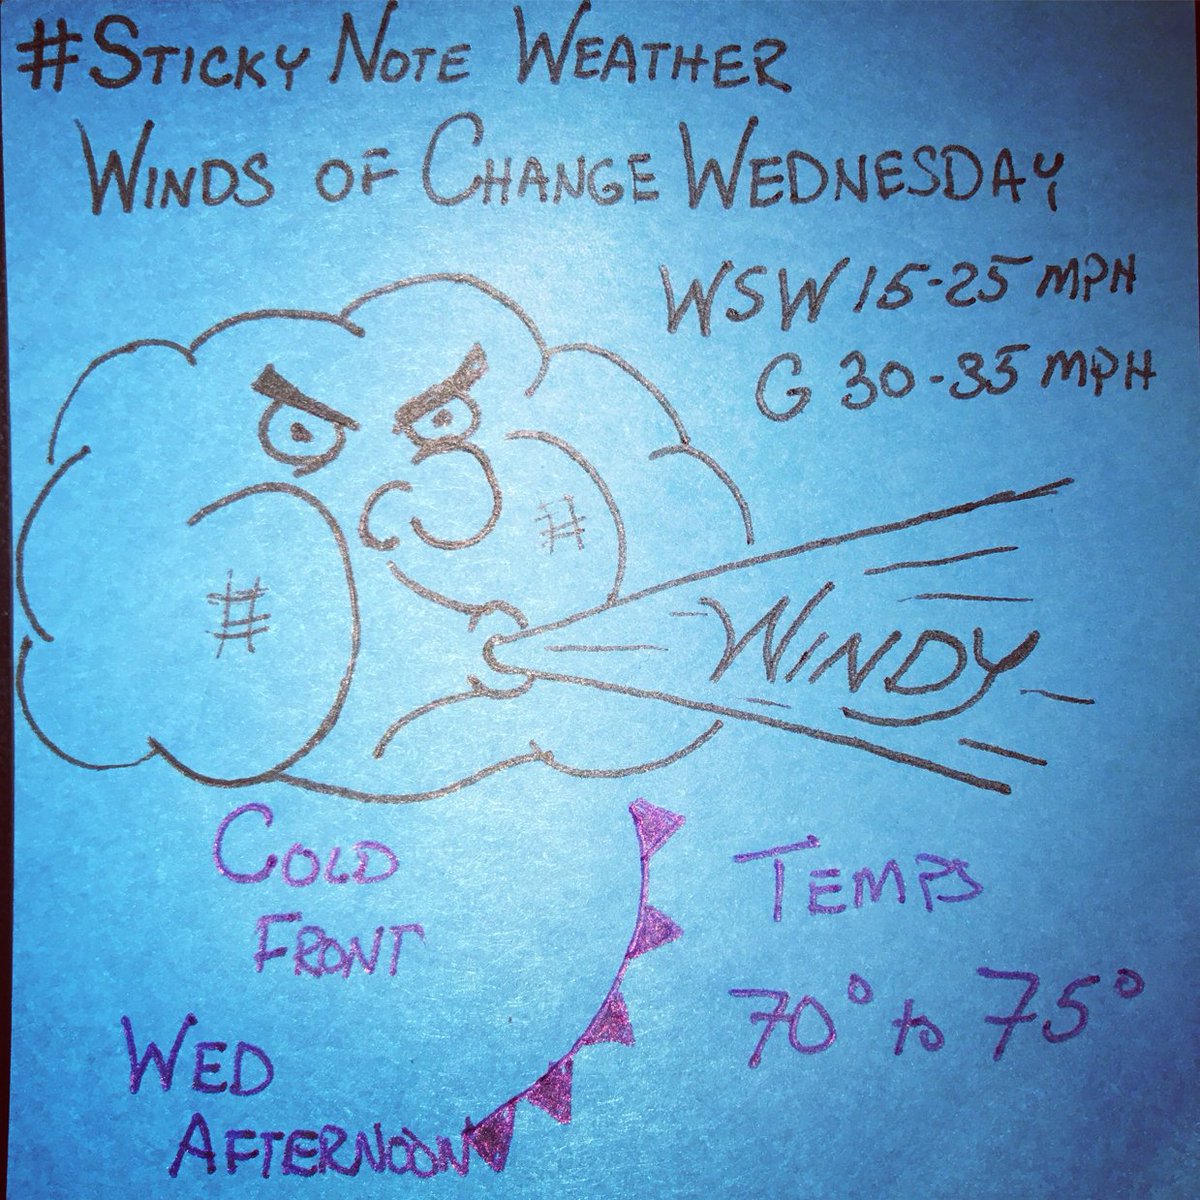 #STICKY NOTE WEATHER
WINDS OF CHANGE WEDNESDAY
WSW 15-25 MPH
G 30-35 MPH
WINDY
COLD
FRONT
WED
AFTERNOON
TEMPS
70° to 75°